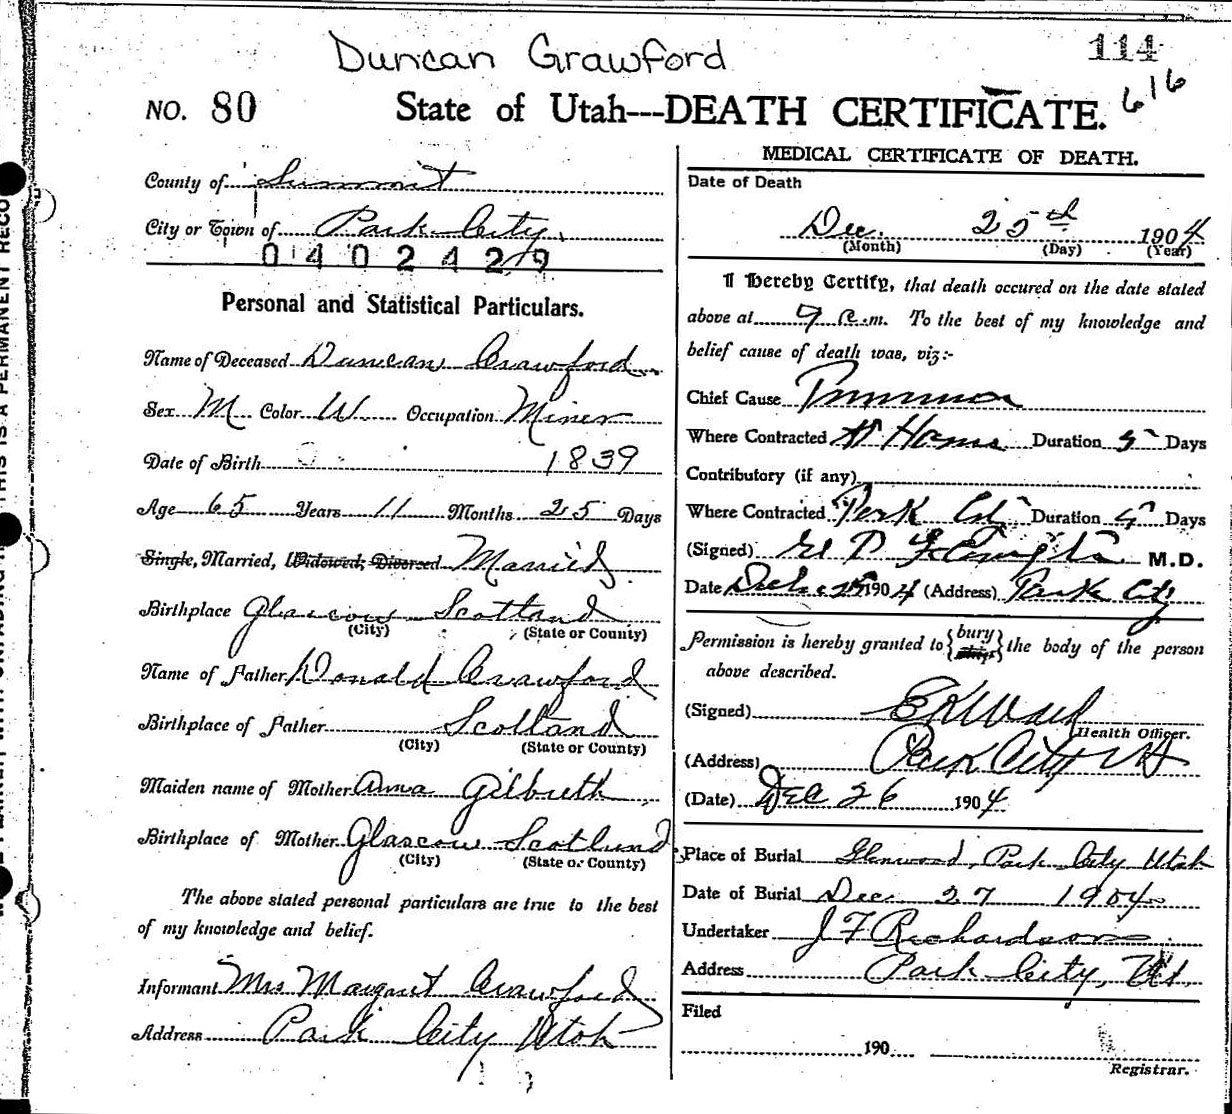 Duncan Crawford
114
616
NO. 80
State of Utah---DEATH CERTIFICATE.
THIS IS A PERMANENT RECO
County of Summit
City or Town of Park City.
0402429
Personal and Statistical Particulars.
Name of Deceased Duncan Crawford
Sex M Color W Occupation Miner
Date of Birth 1839
Age 65 Years 11 Months 25 Days
Single, Married, Widowed, Divorced Married
Birthplace Glascow Scotland
(City) (State or County)
Name of Father Donald Crawford
Birthplace of Father Scotland
(City) (State or County)
Maiden name of Mother Anna Gilbreth
Birthplace of Mother Glascow Scotland
(City) (State or County)
The above stated personal particulars are true to the best
of my knowledge and belief.
Informant Mrs Margaret Crawford
Address Park City Utah
MEDICAL CERTIFICATE OF DEATH.
Date of Death
Dec. 25th 1904
(Month) (Day) (Year)
I Hereby Certify, that death occured on the date stated
above at 9 a.m. To the best of my knowledge and
belief cause of death was, viz:-
Chief Cause
Where Contracted At Home Duration 5 Days
Contributory (if any)
Where Contracted Park City Duration 5 Days
(Signed) M.D.
Date Dec 25 1904 (Address) Park City
Permission is hereby granted to {bury ship} the body of the person
above described.
(Signed) E K Ward
Health Officer.
(Address) Park City Ut
(Date) Dec 26 1904
Place of Burial Glenwood, Park City Utah
Date of Burial Dec. 27 1904
Undertaker J F Richardson
Address Park City, Ut.
Filed
190
Registrar.